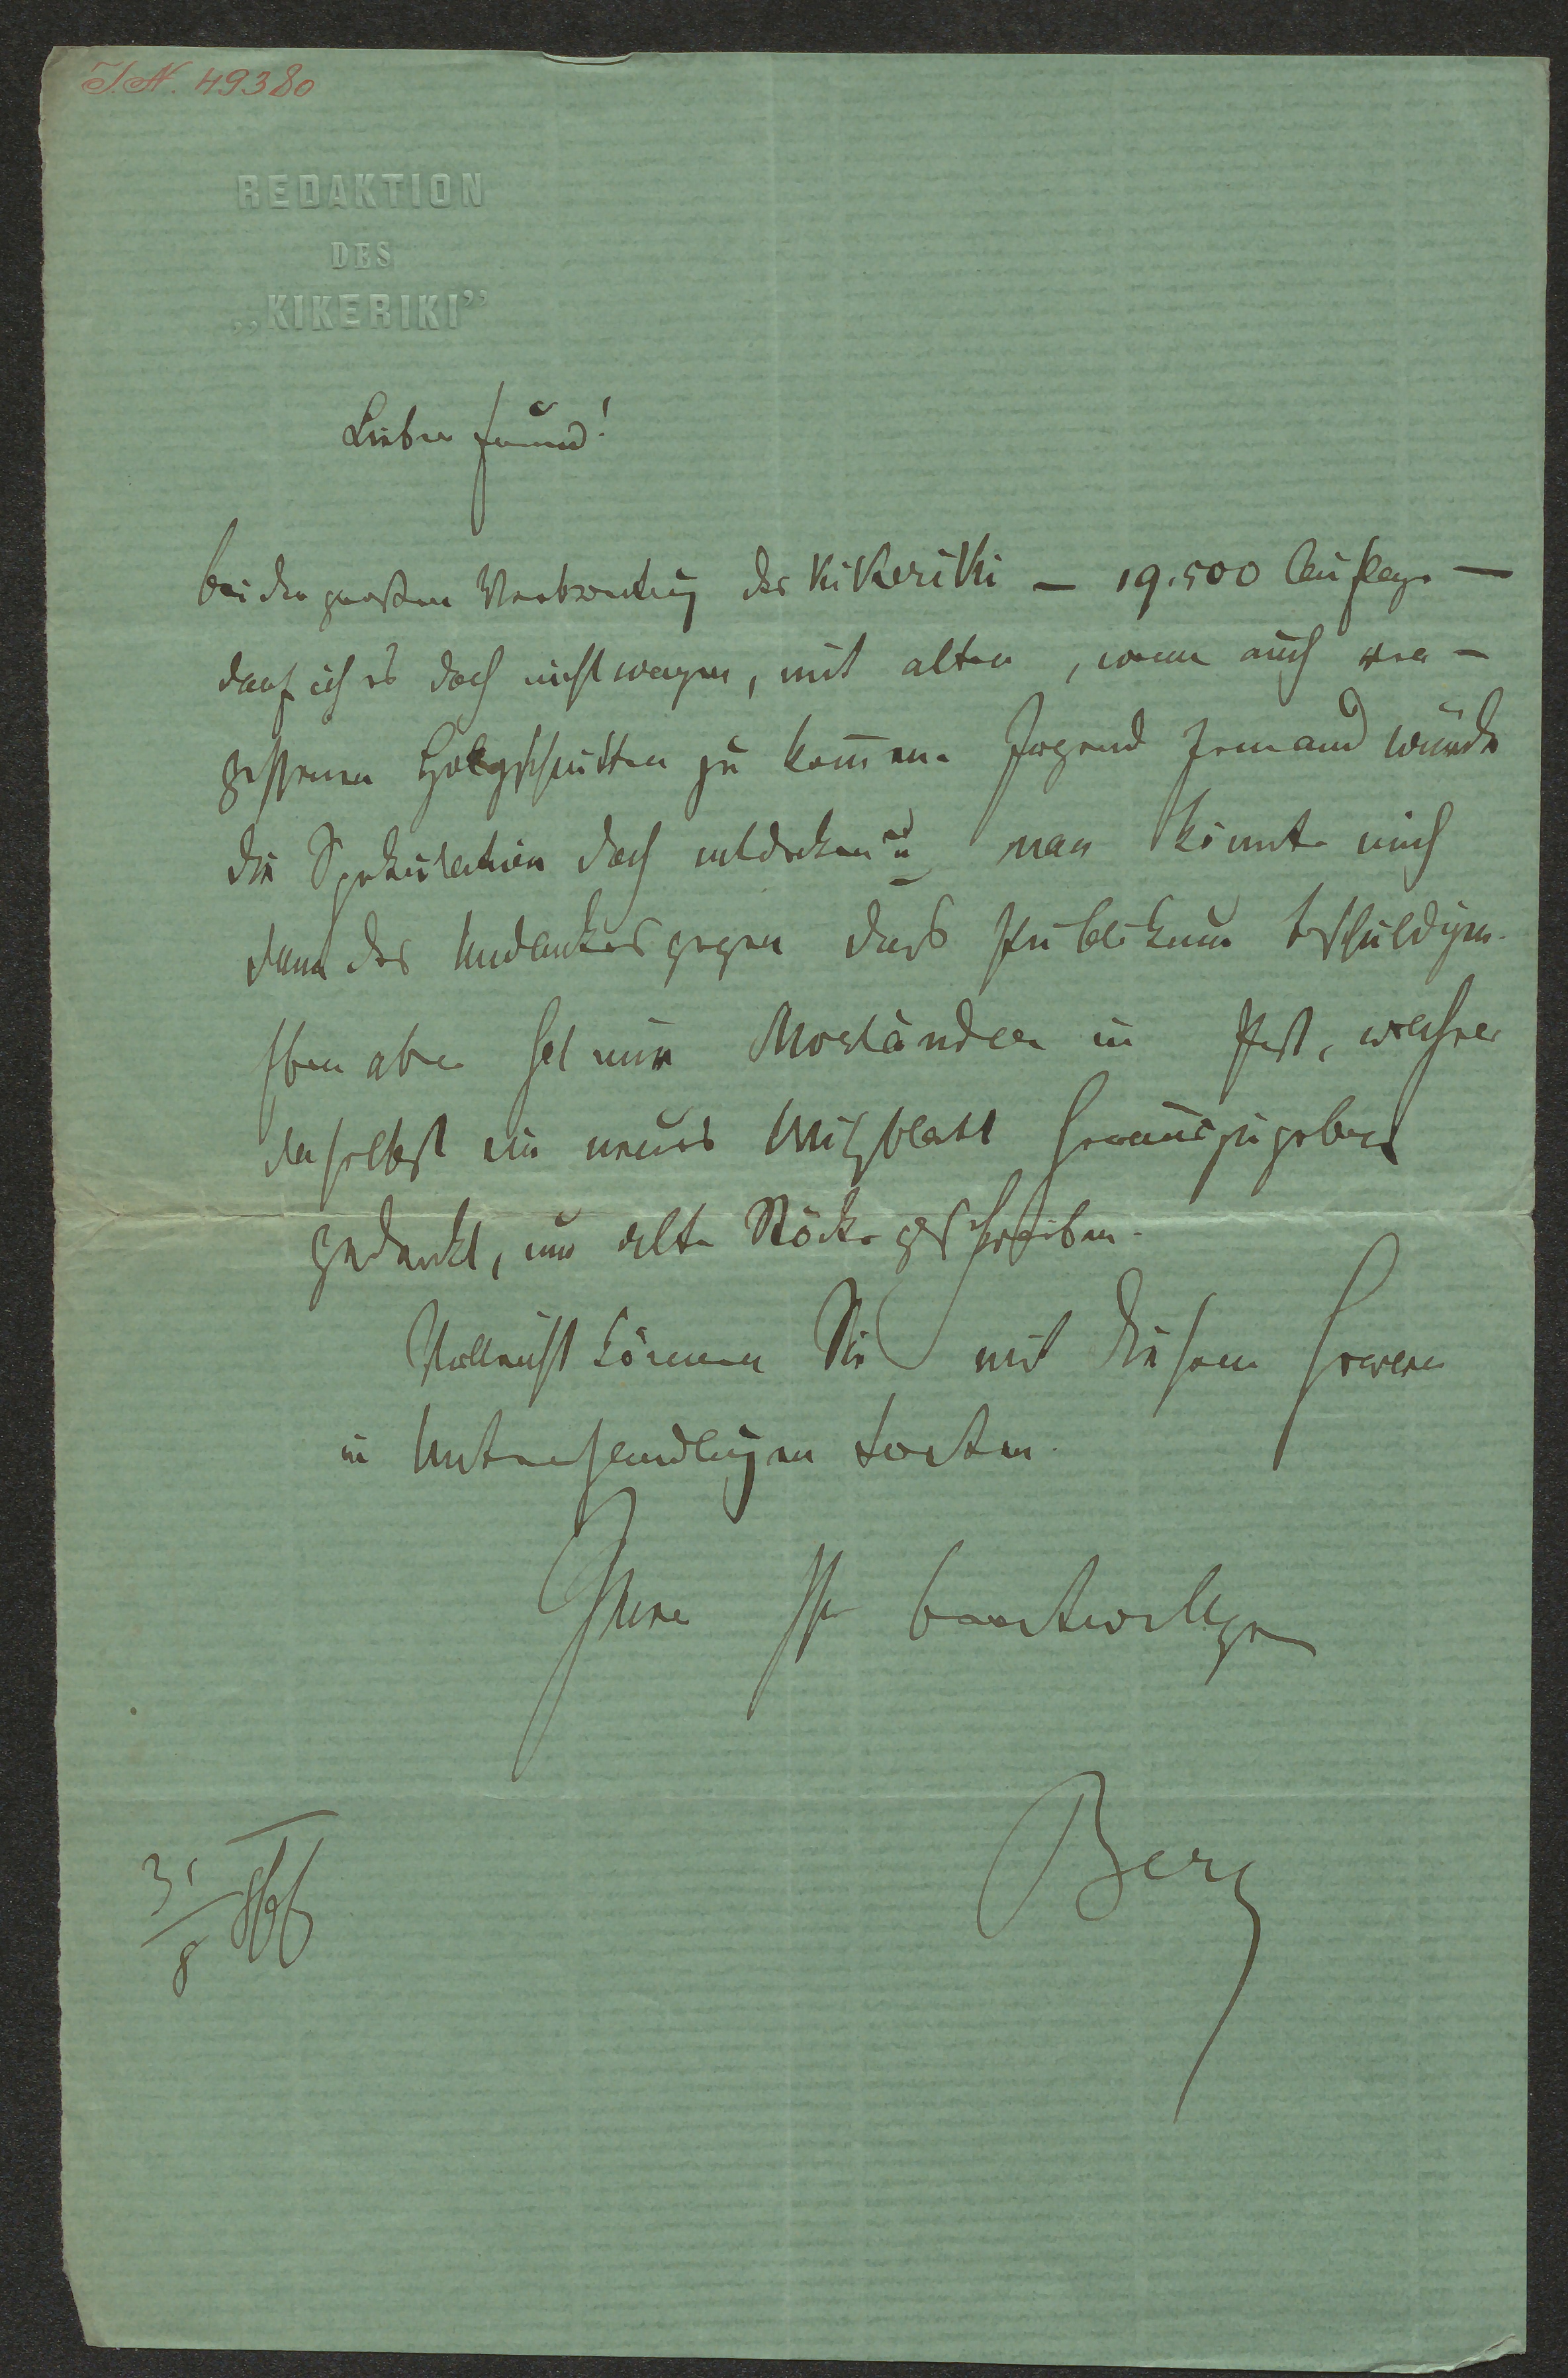 I.N. 49380
REDAKTION
DES
„KIKERIKI”
Lieber Freund!
bei der großen Verbreitung des Kikeriki – 19.500 Auflage –
darf ich es doch nicht wagen, mit alten, wenn auch ver-
gessenen Holzschnitten zu kom̄en. Irgend Jemand würde
die Spekulation doch entdecken u man könnte mich
dann des Undankes gegen das Publikum beschuldigen.
Eben aber hat mir Morländer in Pest, welcher
daselbst ein neues Witzblatt herauszugeben
gedenkt, um alte Stöcke geschrieben.
Vielleicht können Sie mit diesem Herren
in Unterhandlungen treten.
Ihren bereitwilligen
Berg
31/8 866